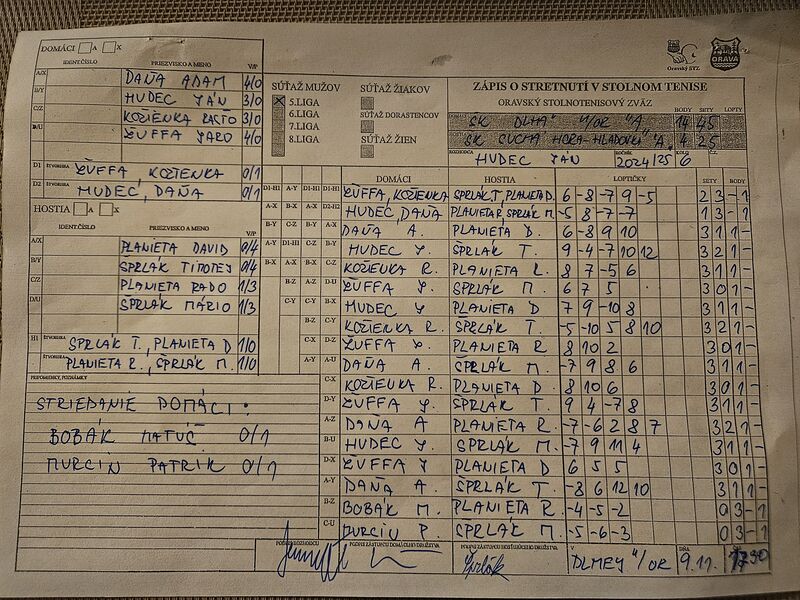 DOMÁCI A X
IDENT.ČÍSLO PRIEZVISKO A MENO V/P
A/X DAŇA ADAM 4/0
B/Y HUDEC JÁN 3/0
C/Z KOŽIENKA RASŤO 3/0
D/U ĽUFFA JARO 4/0
D1 ŠTVORHRA ĽUFFA, KOŽIENKA 0/1
D2 ŠTVORHRA HUDEC, DAŇA 0/1
HOSTIA A X
IDENT.ČÍSLO PRIEZVISKO A MENO V/P
A/X PLANIETA DAVID 0/4
B/Y ŠPRLÁK TIMOTEJ 0/4
C/Z PLANIETA RADO 1/3
D/U ŠPRLÁK MÁRIO 1/3
H1 ŠTVORHRA ŠPRLÁK T., PLANIETA D 1/0
PLANIETA R., ŠPRLÁK M. 1/0
PRIPOMIENKY, POZNÁMKY
STRIEDANIE DOMÁCI:
BOBÁK MATÚŠ 0/1
MURCIN PATRIK 0/1
SÚŤAŽ MUŽOV
5.LIGA
6.LIGA
7.LIGA
8.LIGA
SÚŤAŽ ŽIAKOV
SÚŤAŽ DORASTENCOV
SÚŤAŽ ŽIEN
Oravský STZ
ORAVA
ZÁPIS O STRETNUTÍ V STOLNOM TENISE
ORAVSKÝ STOLNOTENISOVÝ ZVÄZ
BODY SETY LOPTY
"A" 14 45
SK SUCHÁ HORA-HLADOVKA "A" 4 25
ROZHODCA HUDEC JÁN 2024/25 KOLO 6 Č.Z.
DOMÁCI HOSTIA LOPTIČKY SETY BODY
ĽUFFA, KOŽIENKA ŠPRLÁK T, PLANIETA D. 6 -8 -7 9 -5 2 3 - 1
HUDEC, DAŇA PLANIETA R, ŠPRLÁK M. -5 8 -7 -7 1 3 - 1
DAŇA A. PLANIETA D. 6 -8 9 10 3 1 1 -
HUDEC J. ŠPRLÁK T. 9 -4 -7 10 12 3 2 1 -
KOŽIENKA R. PLANIETA R. 8 7 -5 6 3 1 1 -
ĽUFFA J. ŠPRLÁK M 6 7 5 3 0 1 -
HUDEC J PLANIETA D 7 9 -10 8 3 1 1 -
KOŽIENKA R. ŠPRLÁK T. -5 -10 5 8 10 3 2 1 -
ĽUFFA J. PLANIETA R 8 10 2 3 0 1 -
DAŇA A. ŠPRLÁK M. -7 9 8 6 3 1 1 -
KOŽIENKA R. PLANIETA D. 8 10 6 3 0 1 -
ĽUFFA J. ŠPRLÁK T. 9 4 -7 8 3 1 1 -
DAŇA A PLANIETA R. -7 -6 2 8 7 3 2 1 -
HUDEC J ŠPRLÁK M. -7 9 11 4 3 1 1 -
ĽUFFA J PLANIETA D 6 5 5 3 0 1 -
DAŇA A. ŠPRLÁK T. -8 6 12 10 3 1 1 -
BOBÁK M. PLANIETA R -4 -5 -2 0 3 - 1
MURCIN P. ŠPRLÁK M. -5 -6 -3 0 3 - 1
PODPIS ROZHODCU PODPIS ZÁSTUPCU DOMÁCEHO DRUŽSTVA PODPIS ZÁSTUPCU HOSŤUJÚCEHO DRUŽSTVA V DLHEJ N/OR DŇA 9.11.